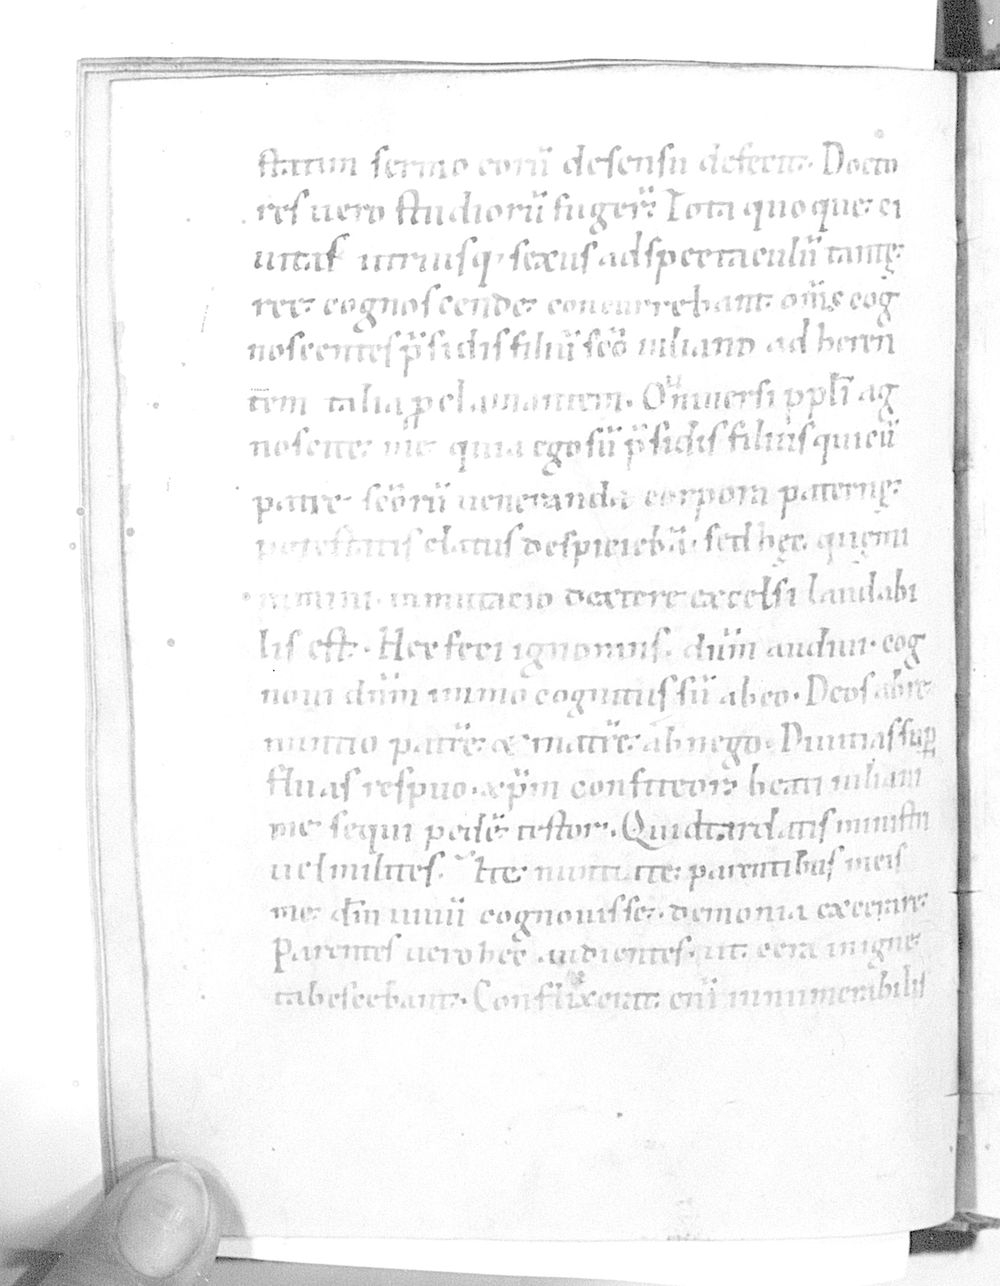 statim sermo eorū desensu defecit. Docto
res uero studiorū fuger̄. Tota quoque ci
uitas utriusq; sexus ad spectaculū tantę
rei cognoscende concurrebant. om̄s cog
noscentes p̄sidis filiū sc̄o iuliano ad heren
tem talia proclamantem. O uniuersi ppl̄i ag
noscite me quia ego sū p̄sidis filius qui cū
patre sc̄orū ueneranda corpora paternę
potestatis elatus despiciebā. sed hec quęmi
nimini. inmutacio dextere excelsi laudabi
lis est. Hec feci ignorans. dūm audiui. cog
noui dūm immo cognitus sū abeo. Deos abre
nuntio patrē & matrē abnego. Diuitias sup
fluas respuo. & xp̄m confiteor. beati iuliani
me sequi pedē testor. Quid tardatis ministri
uel milites. Ite nuntiate parentibus meis
me dm̄ uiuū cognouisse. demonia execrare.
Parentes uero hęc audientes. ut cera in igne
tabescebant. Conflixerat enī innumerabilis